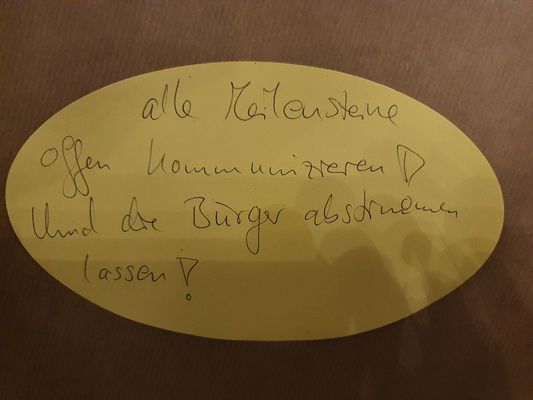 alle Meilensteine
offen kommunizieren!
Und die Bürger abstimmen
lassen!